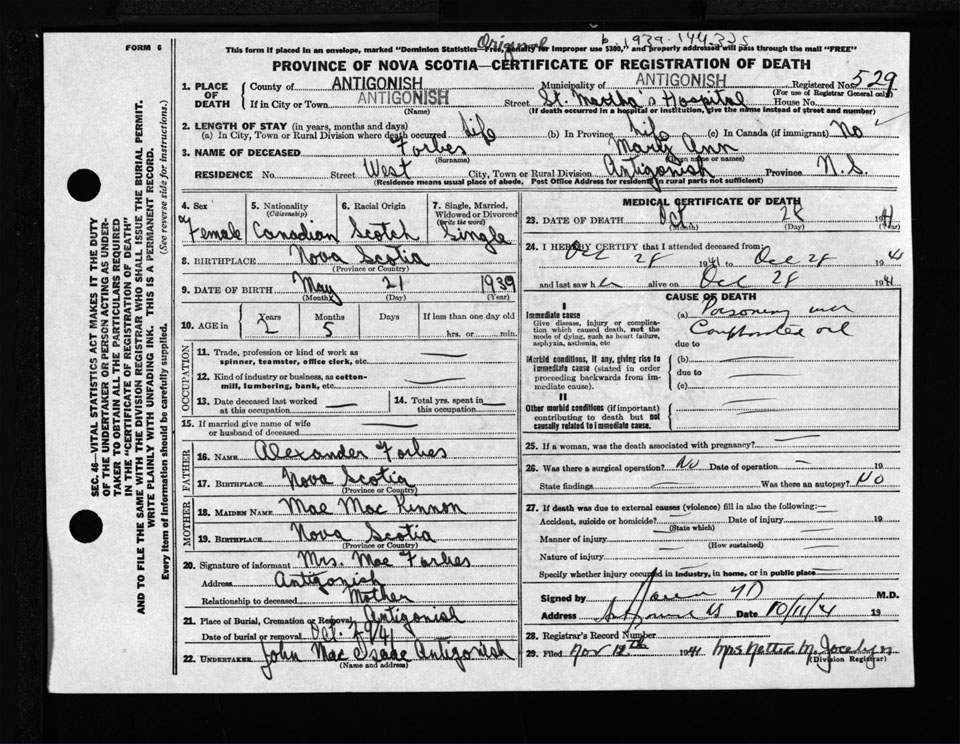 FORM 6
Original b. 1939-144325
This form if placed in an envelope, marked "Dominion Statistics—Free, Penalty for improper use $300," and properly addressed will pass through the mail "FREE"
PROVINCE OF NOVA SCOTIA—CERTIFICATE OF REGISTRATION OF DEATH
1. PLACE OF DEATH County of ANTIGONISH Municipality of ANTIGONISH Registered No. 529
(For use of Registrar General only)
If in City or Town ANTIGONISH Street St. Martha's Hospital House No.
(Name) (If death occurred in a hospital or institution, give the name instead of street and number)
2. LENGTH OF STAY (in years, months and days)
(a) In City, Town or Rural Division where death occurred Life (b) In Province Life (c) In Canada (if immigrant) No
3. NAME OF DECEASED Forbes Mary Ann
(Surname)
RESIDENCE No. Street West City, Town or Rural Division Antigonish Province N.S.
(Residence means usual place of abode. Post Office Address for residents in rural parts not sufficient)
4. Sex Female
5. Nationality (Citizenship) Canadian
6. Racial Origin Scotch
7. Single, Married, Widowed or Divorced (Write the word) Single
8. BIRTHPLACE Nova Scotia
(Province or Country)
9. DATE OF BIRTH May 21 1939
(Month) (Day) (Year)
10. AGE in Years 2 Months 5 Days If less than one day old hrs. or min.
OCCUPATION
11. Trade, profession or kind of work as spinner, teamster, office clerk, etc.
12. Kind of industry or business, as cotton-mill, lumbering, bank, etc.
13. Date deceased last worked at this occupation
14. Total yrs. spent in this occupation
15. If married give name of wife or husband of deceased
FATHER
16. NAME Alexander Forbes
17. BIRTHPLACE Nova Scotia
(Province or Country)
MOTHER
18. MAIDEN NAME Mae Mac Kinnon
19. BIRTHPLACE Nova Scotia
(Province or Country)
20. Signature of informant Mrs. Mae Forbes
Address Antigonish
Relationship to deceased Mother
21. Place of Burial, Cremation or Removal Antigonish
Date of burial or removal Oct. 29/41
22. UNDERTAKER John Mac Isaac Antigonish
(Name and address)
MEDICAL CERTIFICATE OF DEATH
23. DATE OF DEATH Oct 28 1941
(Month) (Day) (Year)
24. I HEREBY CERTIFY that I attended deceased from
Oct 28 1941 to Oct 28 1941
and last saw her alive on Oct 28 1941
CAUSE OF DEATH
I
Immediate cause
Give disease, injury or complication which caused death, not the mode of dying, such as heart failure, asphyxia, asthenia, etc
(a) Poisoning
Camphorated oil
due to
Morbid conditions, if any, giving rise to immediate cause (stated in order proceeding backwards from immediate cause).
(b)
due to
(c)
II
Other morbid conditions (if important) contributing to death but not causally related to immediate cause.
25. If a woman, was the death associated with pregnancy?
26. Was there a surgical operation? No Date of operation 19
State findings Was there an autopsy? No
27. If death was due to external causes (violence) fill in also the following:—
Accident, suicide or homicide? Date of injury 19
(State which)
Manner of injury
(How sustained)
Nature of injury
Specify whether injury occurred in industry, in home, or in public place
Signed by MD M.D.
Address Antigonish NS Date 10/11/41 19
28. Registrar's Record Number
29. Filed Nov 12th 1941 Mrs Nettie M. Jocelyn
(Division Registrar)
SEC. 46—VITAL STATISTICS ACT MAKES IT THE DUTY
OF THE UNDERTAKER OR PERSON ACTING AS UNDERTAKER
TO OBTAIN ALL THE PARTICULARS REQUIRED
IN THE "CERTIFICATE OF REGISTRATION OF DEATH"
AND TO FILE THE SAME WITH THE DIVISION REGISTRAR WHO SHALL ISSUE THE BURIAL PERMIT.
WRITE PLAINLY WITH UNFADING INK. THIS IS A PERMANENT RECORD.
Every item of information should be carefully supplied. (See reverse side for instructions.)